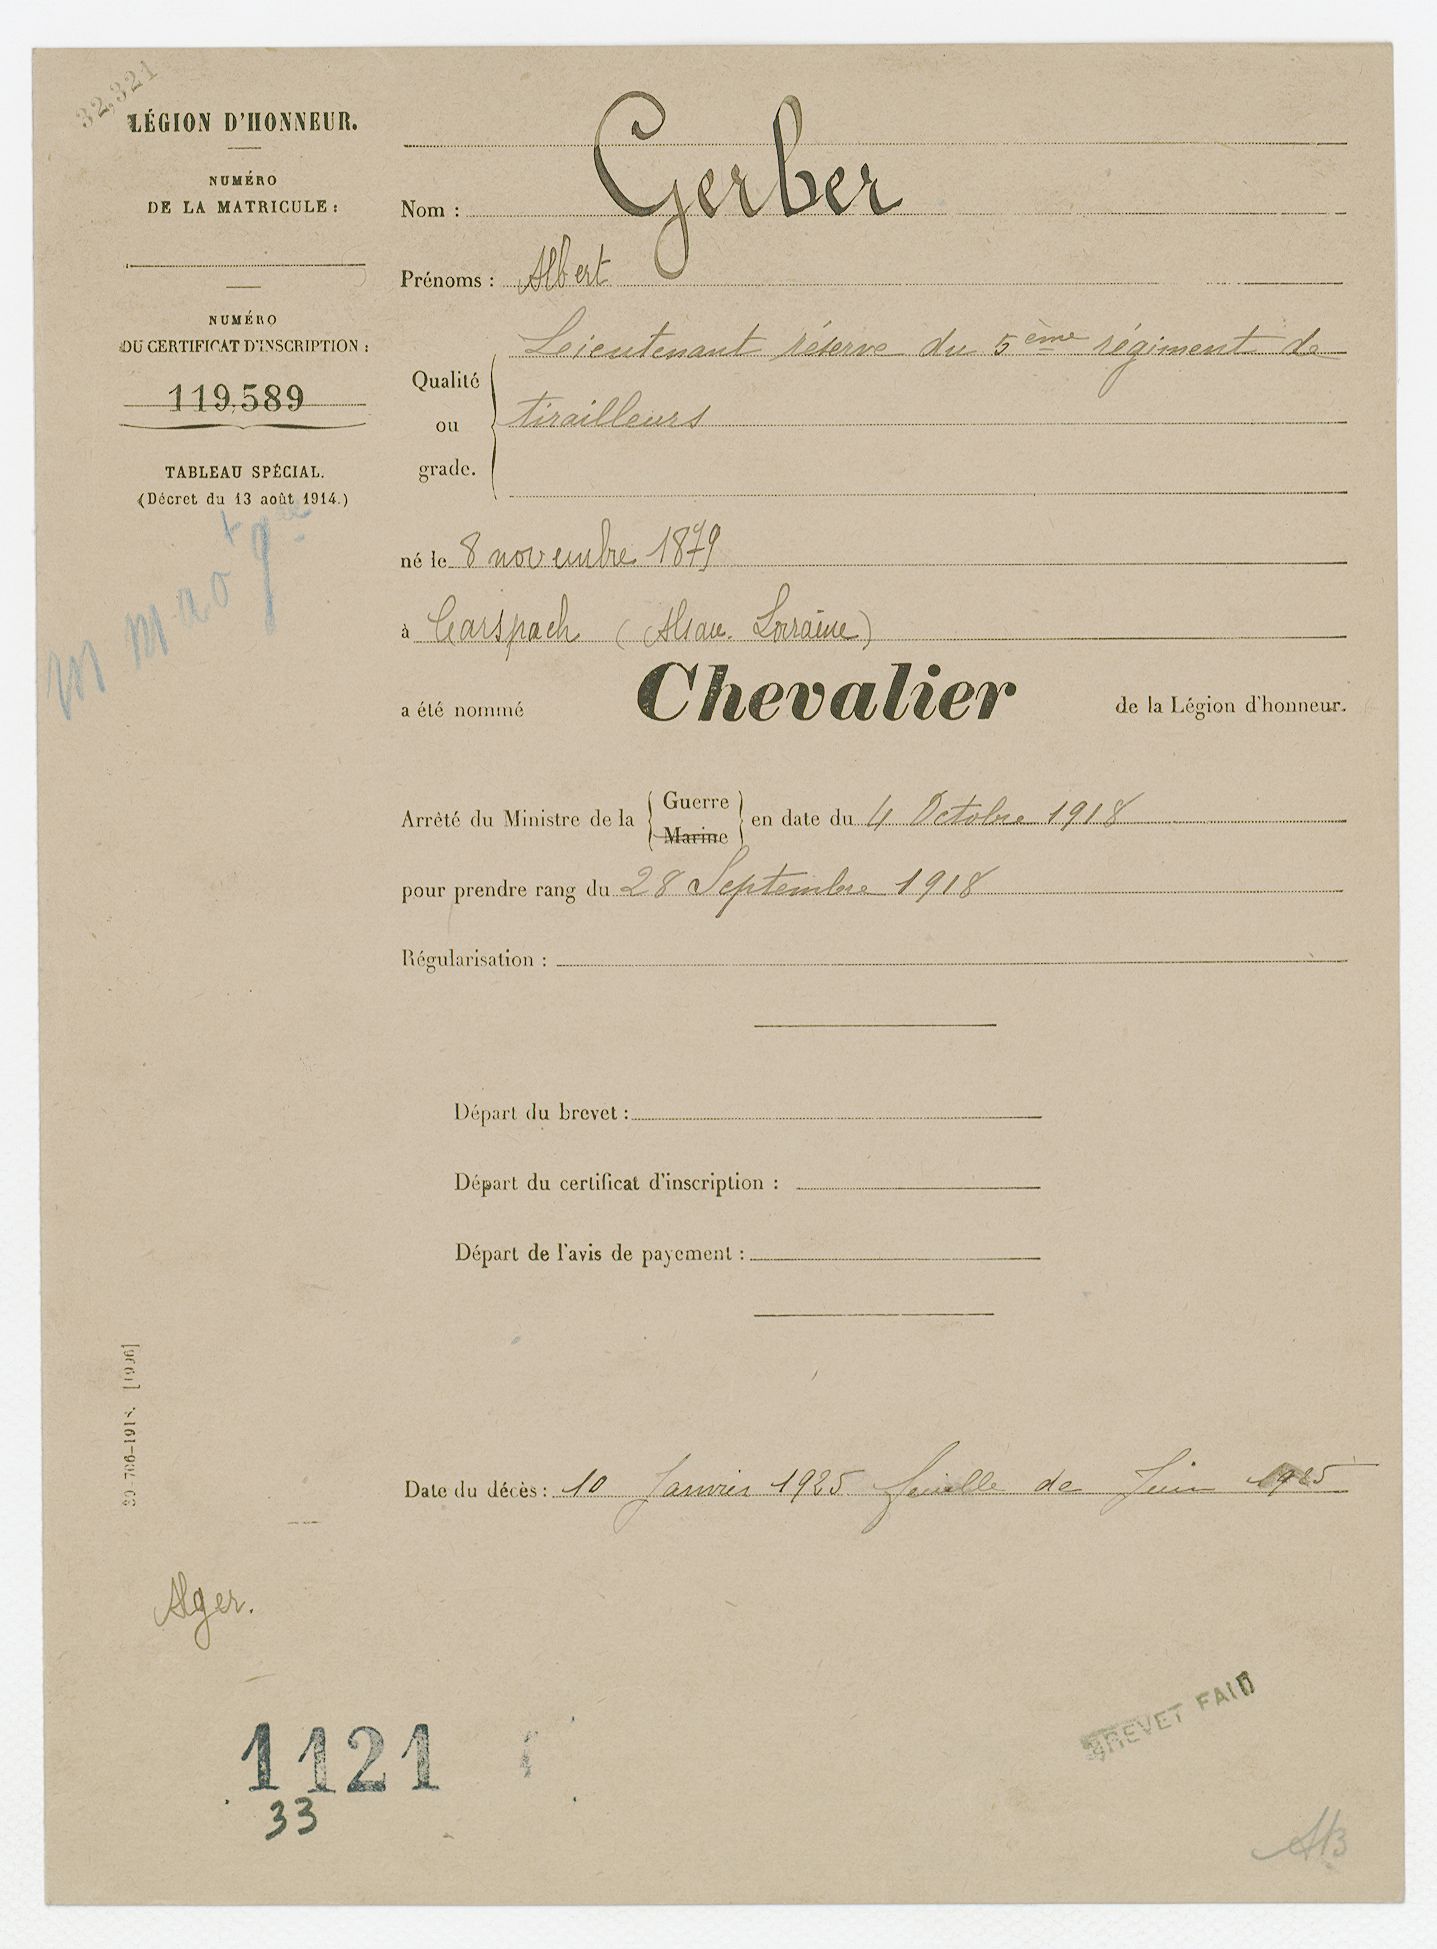 32,321
LÉGION D'HONNEUR.
NUMÉRO
DE LA MATRICULE :
NUMÉRO
DU CERTIFICAT D'INSCRIPTION :
119,589
TABLEAU SPÉCIAL.
(Décret du 13 août 1914.)
Nom : Gerber
Prénoms : Albert
Qualité ou grade. Leieutenant réserve du 5ème régiment de
tirailleurs
né le 8 novembre 1879
à Carspach (Alsace-Lorraine)
a été nommé Chevalier de la Légion d'honneur.
Arrêté du Ministre de la Guerre Marine en date du 4 Octobre 1918
pour prendre rang du 28 Septembre 1918
Régularisation :
Départ du brevet :
Départ du certificat d'inscription :
Départ de l'avis de payement :
Date du décès : 10 Janvier 1925 feuille de Juin 1925
Alger.
BREVET FAIT
1121
33